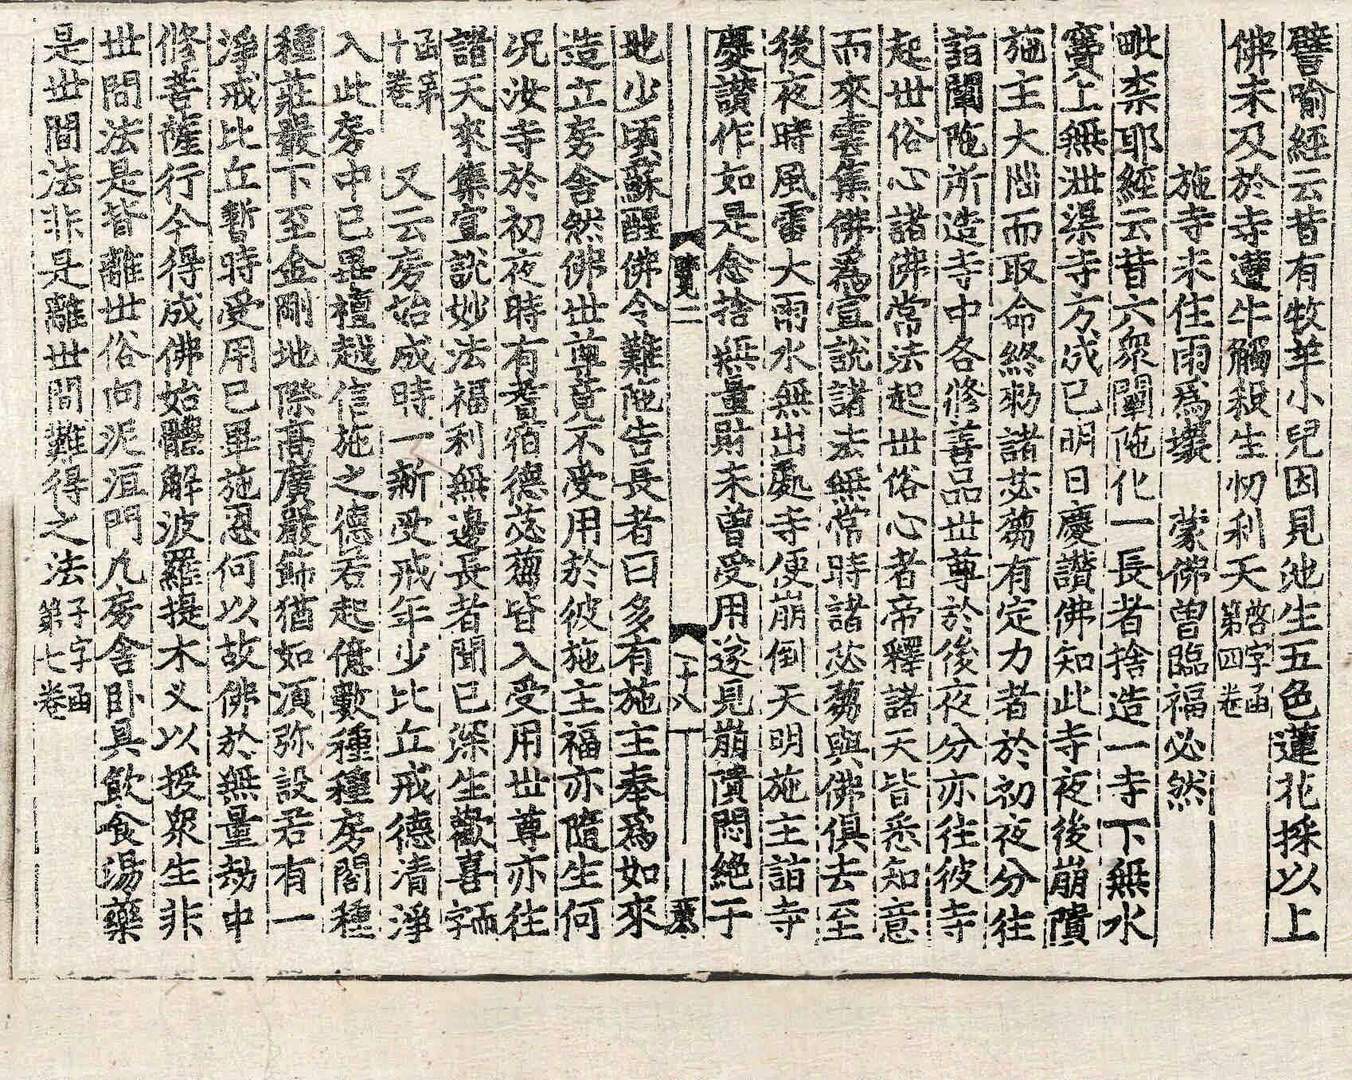 譬喻經云昔有牧羊小兒因見池生五色蓮花採以上
佛未及於寺遭牛觸殺生忉利天啓字函第四卷
施寺未住雨爲壞　蒙佛曾臨福必然
毗柰耶經云昔六衆闡陁化一長者捨造一寺下無水
竇上無泄渠寺方成已明日慶讃佛知此寺夜後崩隤
施主大惱而取命終勑諸苾蒭有定力者於初夜分往
詣闡陁所造寺中各修善品世尊於後夜分亦往彼寺
起世俗心諸佛常法起世俗心者帝釋諸天皆悉知意
而來雲集佛爲宣說諸法無常時諸苾蒭與佛俱去至
後夜時風雷大雨水無出處寺便崩倒天明施主詣寺
慶讃作如是念捨無量財未曾受用遂見崩隤悶絶于
覽二　二十八
地少頃蘇醒佛令難陁告長者曰多有施主奉爲如來
造立房舍然佛世尊竟不受用於彼施主福亦隨生何
况汝寺於初夜時有耆宿德苾蒭皆入受用世尊亦往
諸天來集宣說妙法福利無邊長者聞已深生歡喜而字
函第十卷　又云房始成時一新受戒年少比丘戒德清淨
入此房中已畢檀越信施之德若起億數種種房閣種
種莊嚴下至金剛地際高廣嚴飾猶如須弥設若有一
淨戒比丘暫時受用已畢施恩何以故佛於無量劫中
修菩薩行今得成佛始體解波羅提木义以授衆生非
世間法是昔離世俗向泥洹門凡房舍卧具飲食湯藥
是世間法非是離世間難得之法子字函第七卷